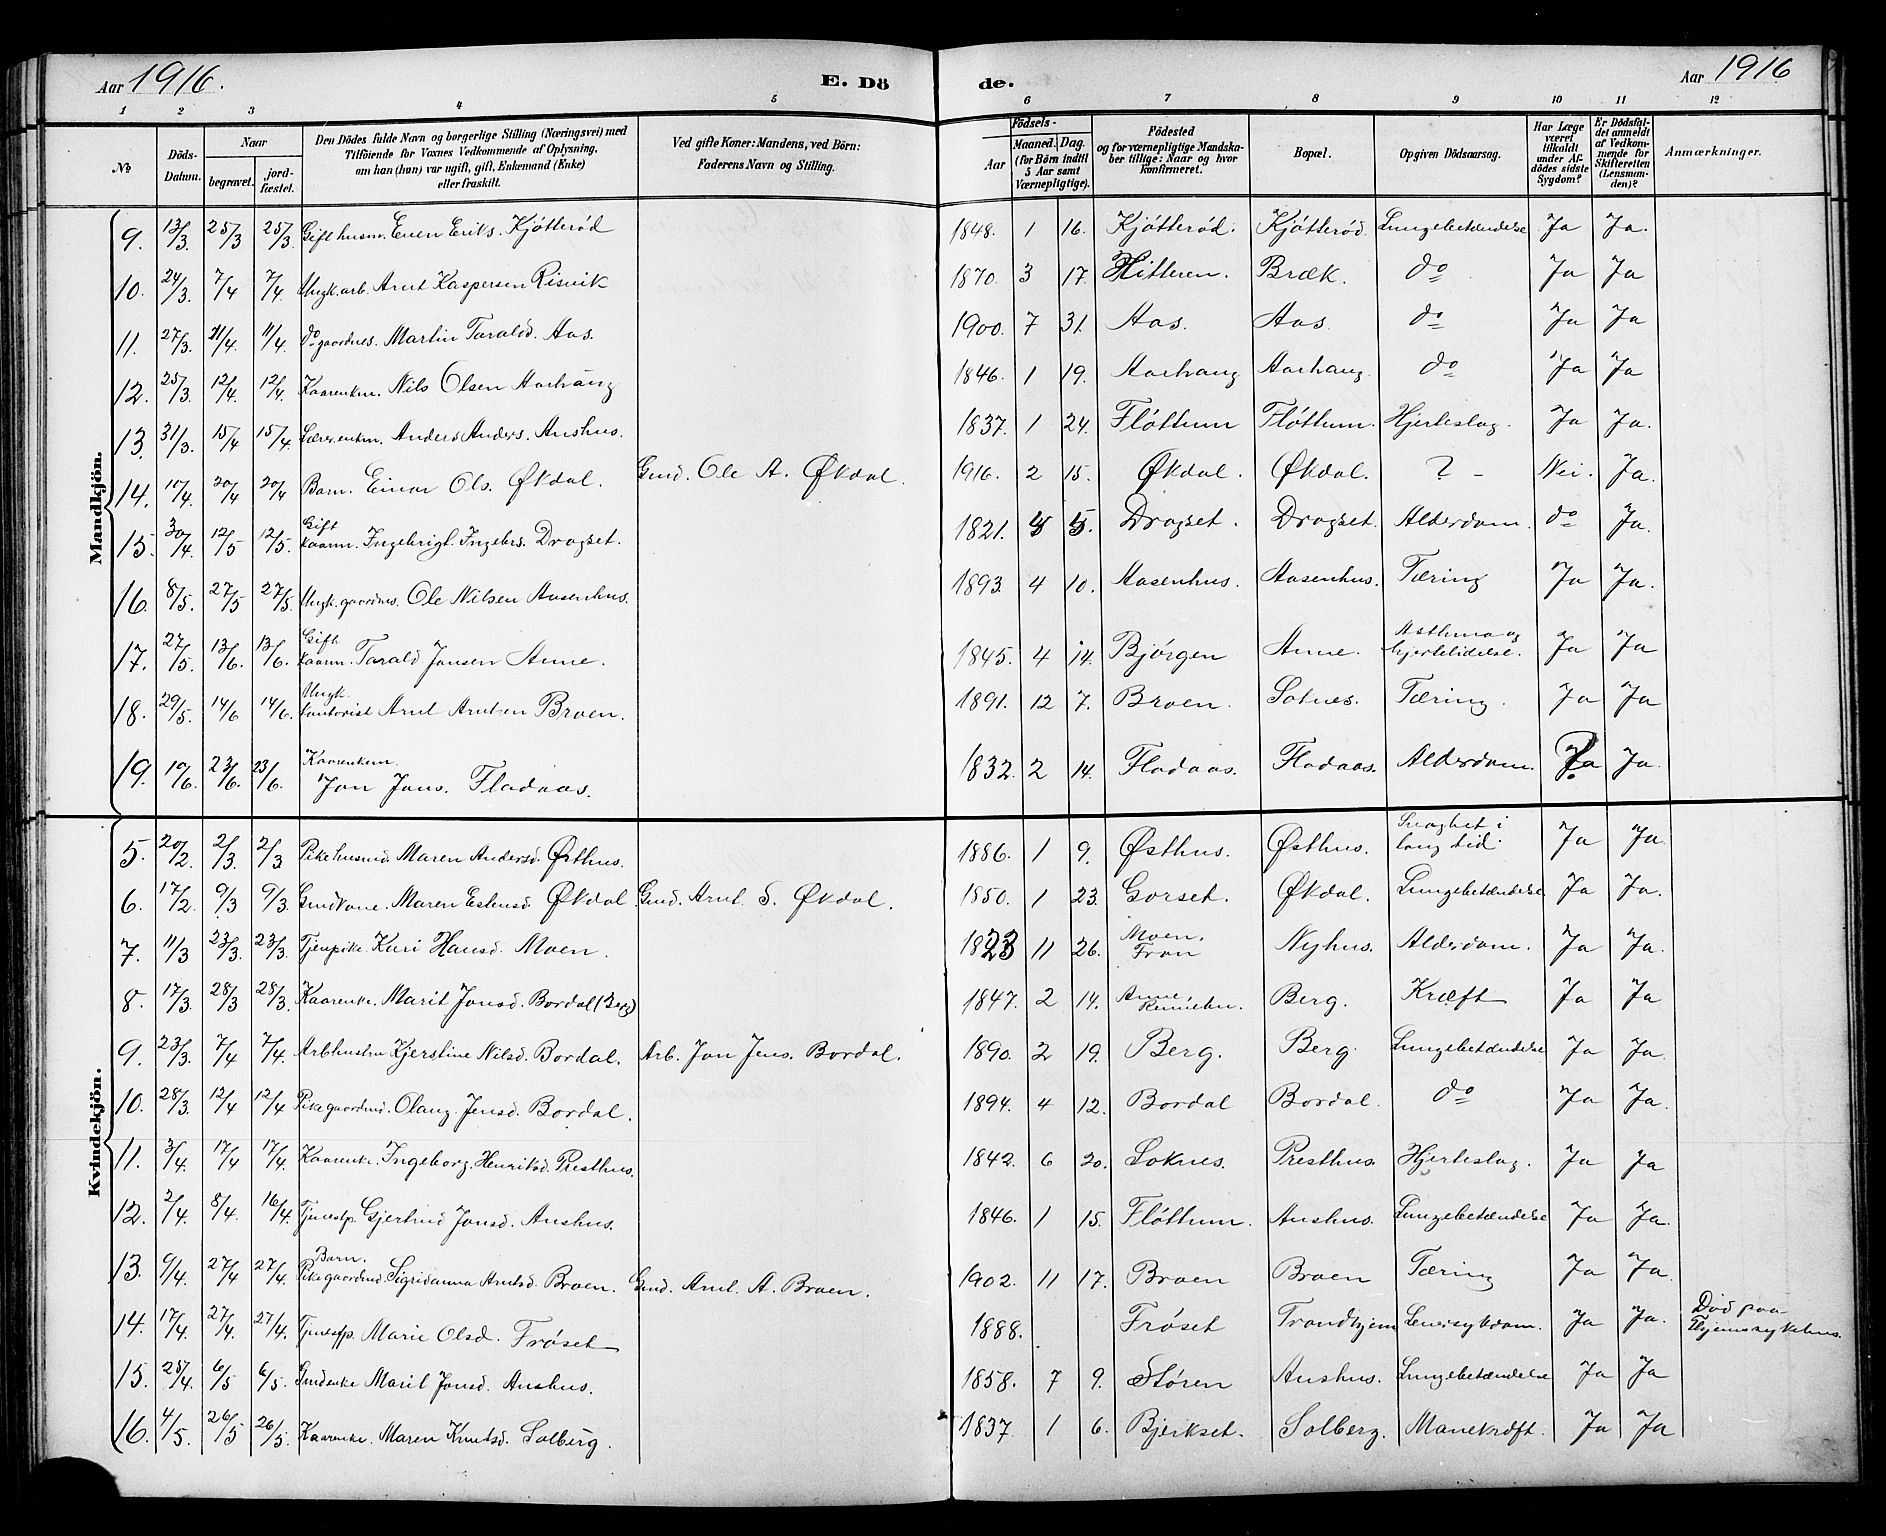 Aar 1916. E. Döde. Aar 1916
1 2 3 4 5 6 7 8 9 10 11 12
No
Döds-Datum.
Naar
begravet.
jordfæstet.
Den Dödes fulde Navn og borgerlige Stilling (Næringsvei) med
Tilföiende for Voxnes Vedkommende af Oplysning,
om han (hun) var ugift, gift, Enkemand (Enke)
eller fraskilt.
Ved gifte Koner: Mandens, ved Börn:
Faderens Navn og Stilling.
Födsels-
Aar
Maaned. Dag.
(for Börn indtil
5 Aar samt
Værnepligtige).
Födested
og for værnepligtige Mandskaber tillige: Naar og hvor
konfirmeret.
Bopæl.
Opgiven Dödsaarsag.
Har Læge
været
tilkaldt
under Afdödes sidste
Sygdom?
Er Dödsfaldet anmeldt
af Vedkommende for
Skifteretten
(Lensmanden)?
Anmærkninger.
Mandkjön.
9. 13/3 25/3 25/3. Gift husm. Even Eriks. Kjøtterød 1848. 1 16. Kjøtterød. Kjøtterød. Lungebetændelse Ja Ja.
10. 24/3. 7/4 7/4. Ungk. arb. Arnt Kaspersen Risvik 1870. 3 17. Hitteren. Bræk. do Ja Ja
11. 27/3. 11/4. 11/4. do gaardms. Martin Tarald. Aas. 1900. 7 31. Aas. Aas. do Ja Ja
12. 25/3. 12/4. 12/4. Kaarenkm. Nils Olsen Aarhaug 1846. 1 19. Aarhaug Aarhaug. do Ja Ja
13. 31/3. 15/4 15/4. Lærerenkm. Anders Anders. Aushus. 1837. 1 24. Fløttum Fløttum. Hjerteslag. Ja Ja.
14. 10/4. 20/4 20/4 Barn. Einar Ols. Økdal. Gmd. Ole A. Økdal. 1916. 2 15. Økdal. Økdal. ? - Nei. Ja.
15. 30/4. 12/5 12/5. Gift Kaarm. Ingebrigt. Ingebrs. Dragset. 1821. 5. Dragset. Dragset. Alderdom. do Ja.
16. 8/5. 27/5 27/5. Ungk. gaardms. Ole Nilsen Aasenhus. 1893. 4 10. Aasenhus. Aasenhus. Tæring Ja Ja.
17. 27/5. 13/6. 13/6. Gift Kaarm. Tarald Jonsen Anne. 1845. 4 14. Bjørgen Anne. Asthma og hjertelidelse. Ja Ja
18. 29/5. 14/6 14/6. Ungk. kontorist Arnt Arntsen Broen. 1891. 12 7. Broen. Soknes. Tæring. Ja Ja
19. 10/6. 23/6. 23/6. Kaarenkem. Jon Jons. Fladaas. 1832. 2 14. Fladaas. Fladaas. Alderdom. Ja.
Kvindekjön.
5. 20/2. 2/3. 2/3 Pike husmd. Maren Andersd. Østhus. 1886. 1 9. Østhus. Østhus. Svaghet i lang tid. Ja Ja.
6. 17/2. 9/3 9/3. Gmdkone. Maren Estensd. Økdal Gmd. Arnt. S. Økdal. 1850. 1 23. Gorset. Økdal. Lungebetændelse Ja Ja.
7. 11/3 23/3. 23/3. Tjenpike. Kari Hansd. Moen. 1823 11 26. Moen. Fron Nyhus. Alderdom. Ja Ja.
8. 17/3. 28/3 28/3. Kaarenke. Marit Jonsd. Bordal (Berg) 1847. 2 14. Anne Berg. Kræft Ja Ja
9. 23/3. 7/4 7/4. Arbhustru Kjerstine Nilsd. Bordal. Arb. Jon Jens. Bordal. 1890. 2 19. Berg. Berg. Lungebetændelse Ja Ja.
10. 28/3. 12/4 12/4 Pike gaardmd. Olaug. Jensd. Bordal. 1894. 4 12. Bordal Bordal. do Ja Ja.
11. 3/4. 17/4 17/4. Kaarenke. Ingeborg. Henriksd. Presthus. 1842. 6 20. Soknes. Presthus. Hjerteslag. Ja Ja
12. 2/4. 8/4. 16/4. Tjenestp. Gjertrud Jonsd. Aushus. 1846. 1 15. Fløttum. Aushus. Lungebetændelse Ja Ja.
13. 9/4. 27/4 27/4. Barn. Pike gaardmd. Sigridanna Arntsd. Broen. Gmd. Arnt. A. Broen. 1902. 11 17. Broen Broen Tæring Ja Ja.
14. 17/4. 27/4. 27/4. Tjenestp. Marie Olsd. Frøset 1888. Frøset Trondhjem Ja Ja. Død paa Thjems sykehus.
15. 25/4. 6/5 6/5. Gmdenke Marit Jonsd. Aushus. 1858. 7 9. Støren Aushus. Lungebetændelse Ja Ja
16. 4/5. 26/5 26/5. Kaarenke. Maren Knutsd. Solberg. 1837. 1 6. Bjerkset. Solberg. Mavekræft. Ja Ja